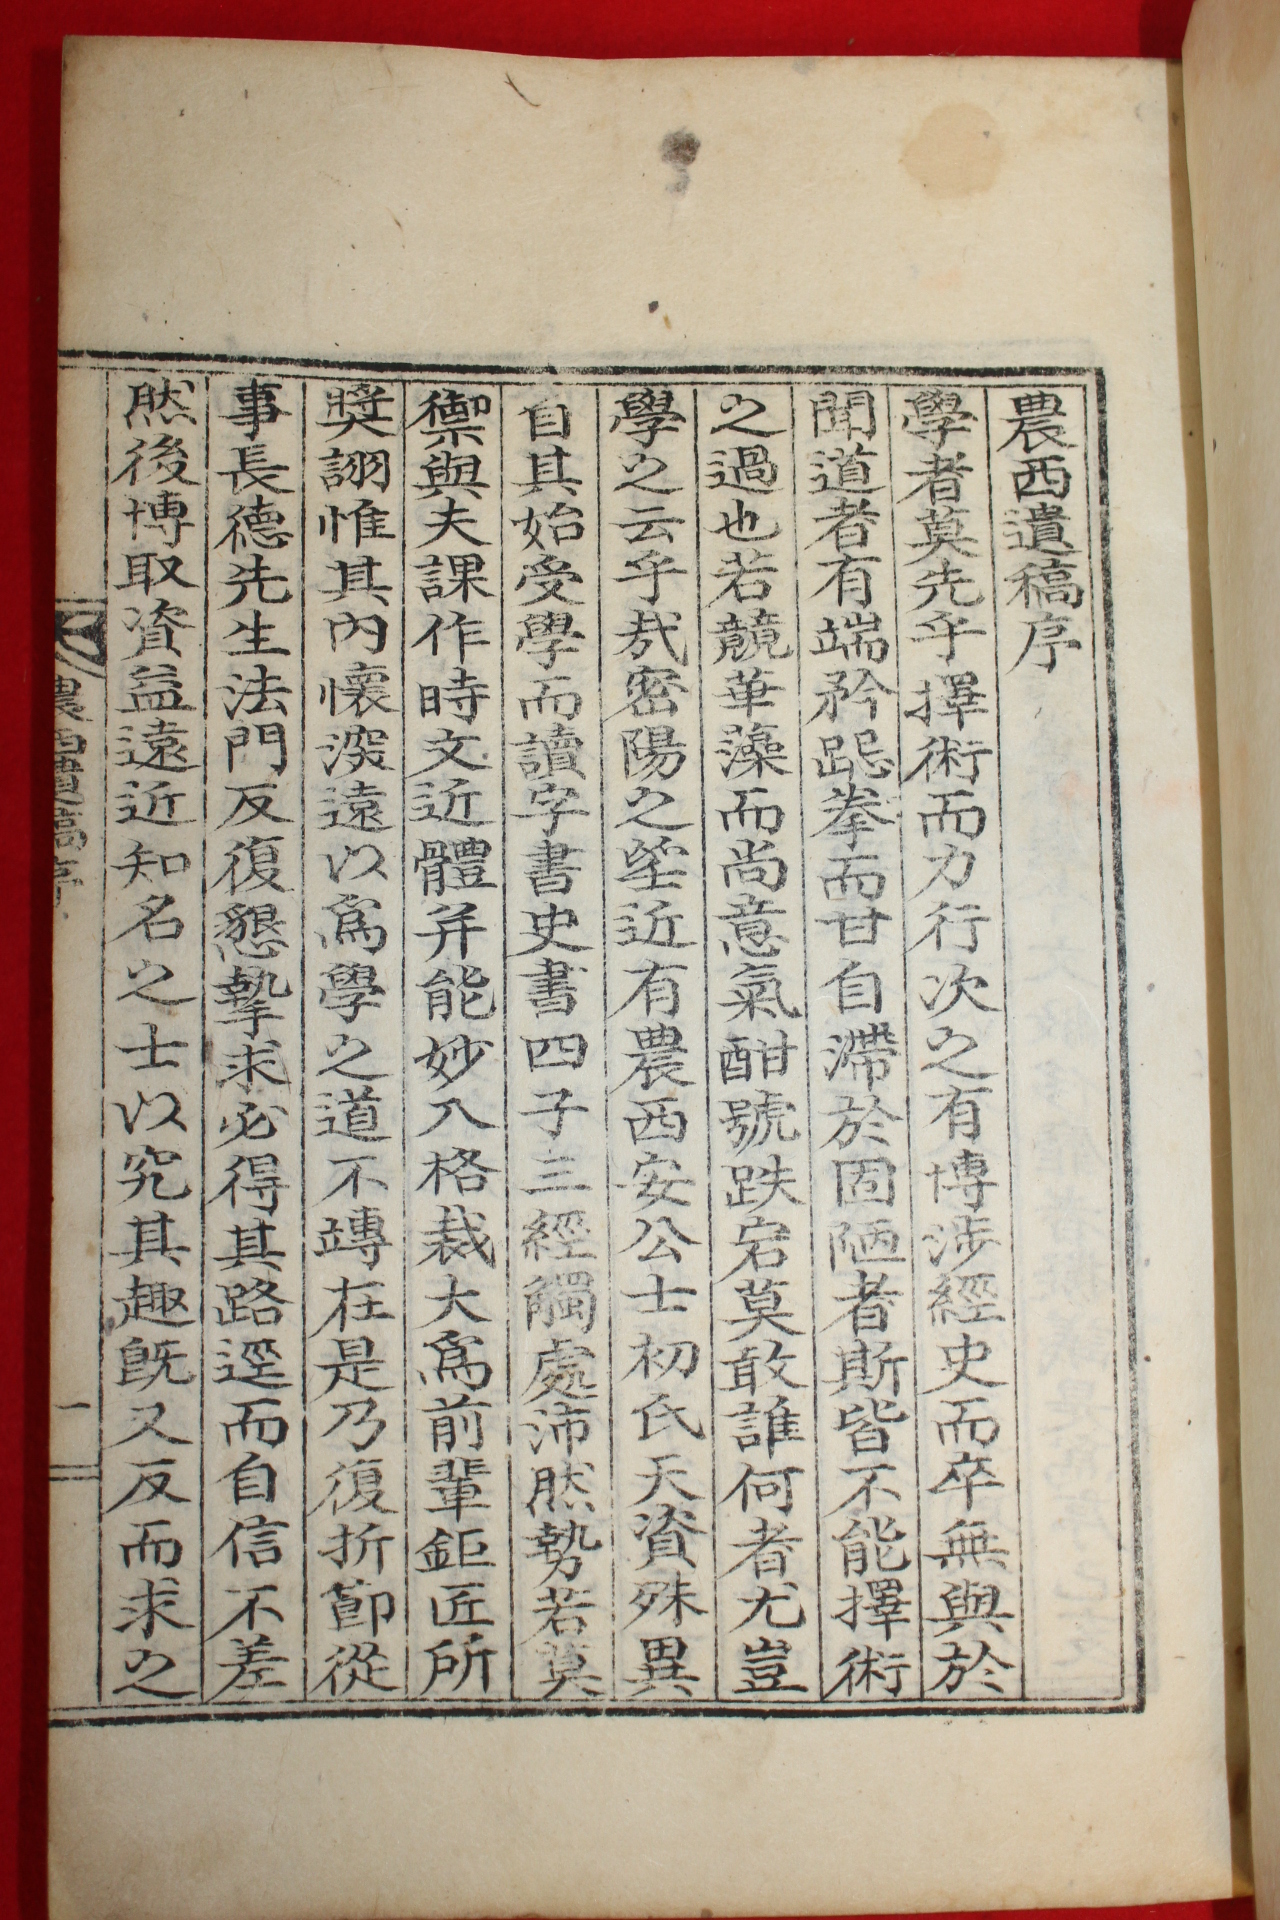 農西遺稿序
學者莫先乎擇術而力行次之有博涉經史而卒無與於
聞道者有端矜跽拳而甘自滯於固陋者斯皆不能擇術
之過也若競華藻而尚意氣酣號跌宕莫敢誰何者尤豈
學之云乎哉密陽之坒近有農西安公士初氏天資殊異
自其始受學而讀字書史書四子三經觸處沛然勢若莫
禦與夫課作時文近體并能妙入格裁大爲前輩鉅匠所
奬詡惟其內懷深遠以爲學之道不竱在是乃復折節從
事長德先生法門反復懇摯求必得其路逕而自信不差
然後博取資益遠近知名之士以究其趣旣又反而求之
農西遺稿序
一